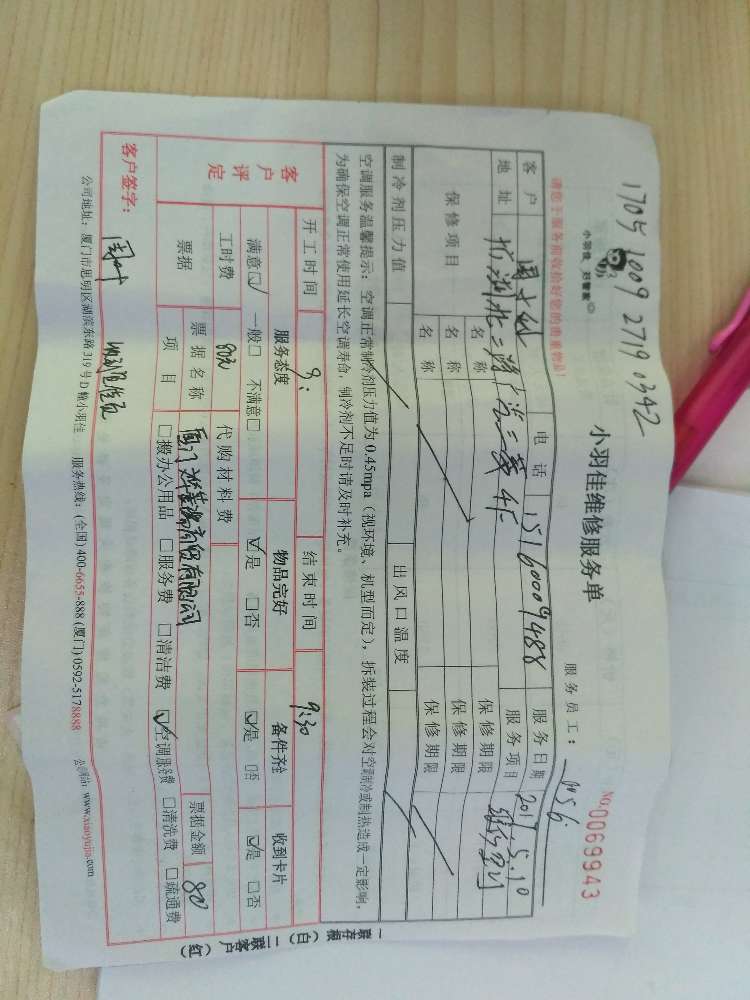 1705 1009 2719 0342
小羽佳 好管家
小羽佳维修服务单
服务员工：
NO.0069943
请您于服务前收拾好您的贵重物品！
客户 电话 15160009488 服务日期 2017.5.10
地址 服务项目
保修项目 名称 保修期限
名称 保修期限
名称 保修期限
制冷剂压力值 出风口温度
空调服务温馨提示：空调正常制冷剂压力值为0.45mpa（视环境、机型而定），拆装过程会对空调制冷或制热造成一定影响，
为确保空调正常使用延长空调寿命，制冷剂不足时请及时补充。
开工时间 9: 结束时间 9:30
客户评定 服务态度 物品完好 备件齐全 收到卡片
满意☑ 一般□ 不满意□ ☑是 □否 ☑是 □否 ☑是 □否
工时费 80元 代购材料费
票据 票据名称 票据金额 80
项目 □搬办公用品 □服务费 □清洁费 ☑空调服务费 □清洗费 □疏通费
客户签字：
公司地址：厦门市思明区湖滨东路319号D幢小羽佳 服务热线：(全国) 400-6655-888 (厦门) 0592-5178888 公司网站：www.xiaoyujia.com
一联存根（白） 二联客户（红）